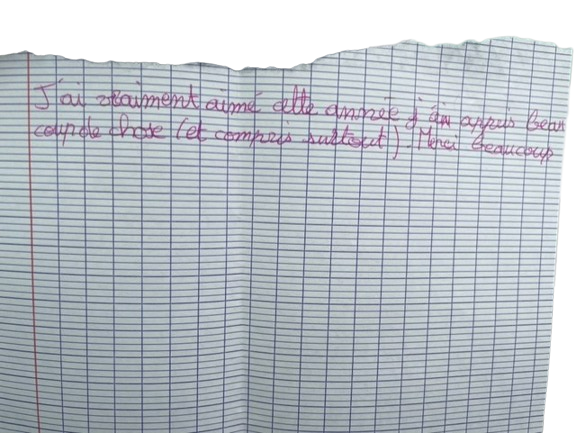 J'ai vraiment aimé cette année j'ai appris beau
coup de chose (et compris surtout). Merci beaucoup